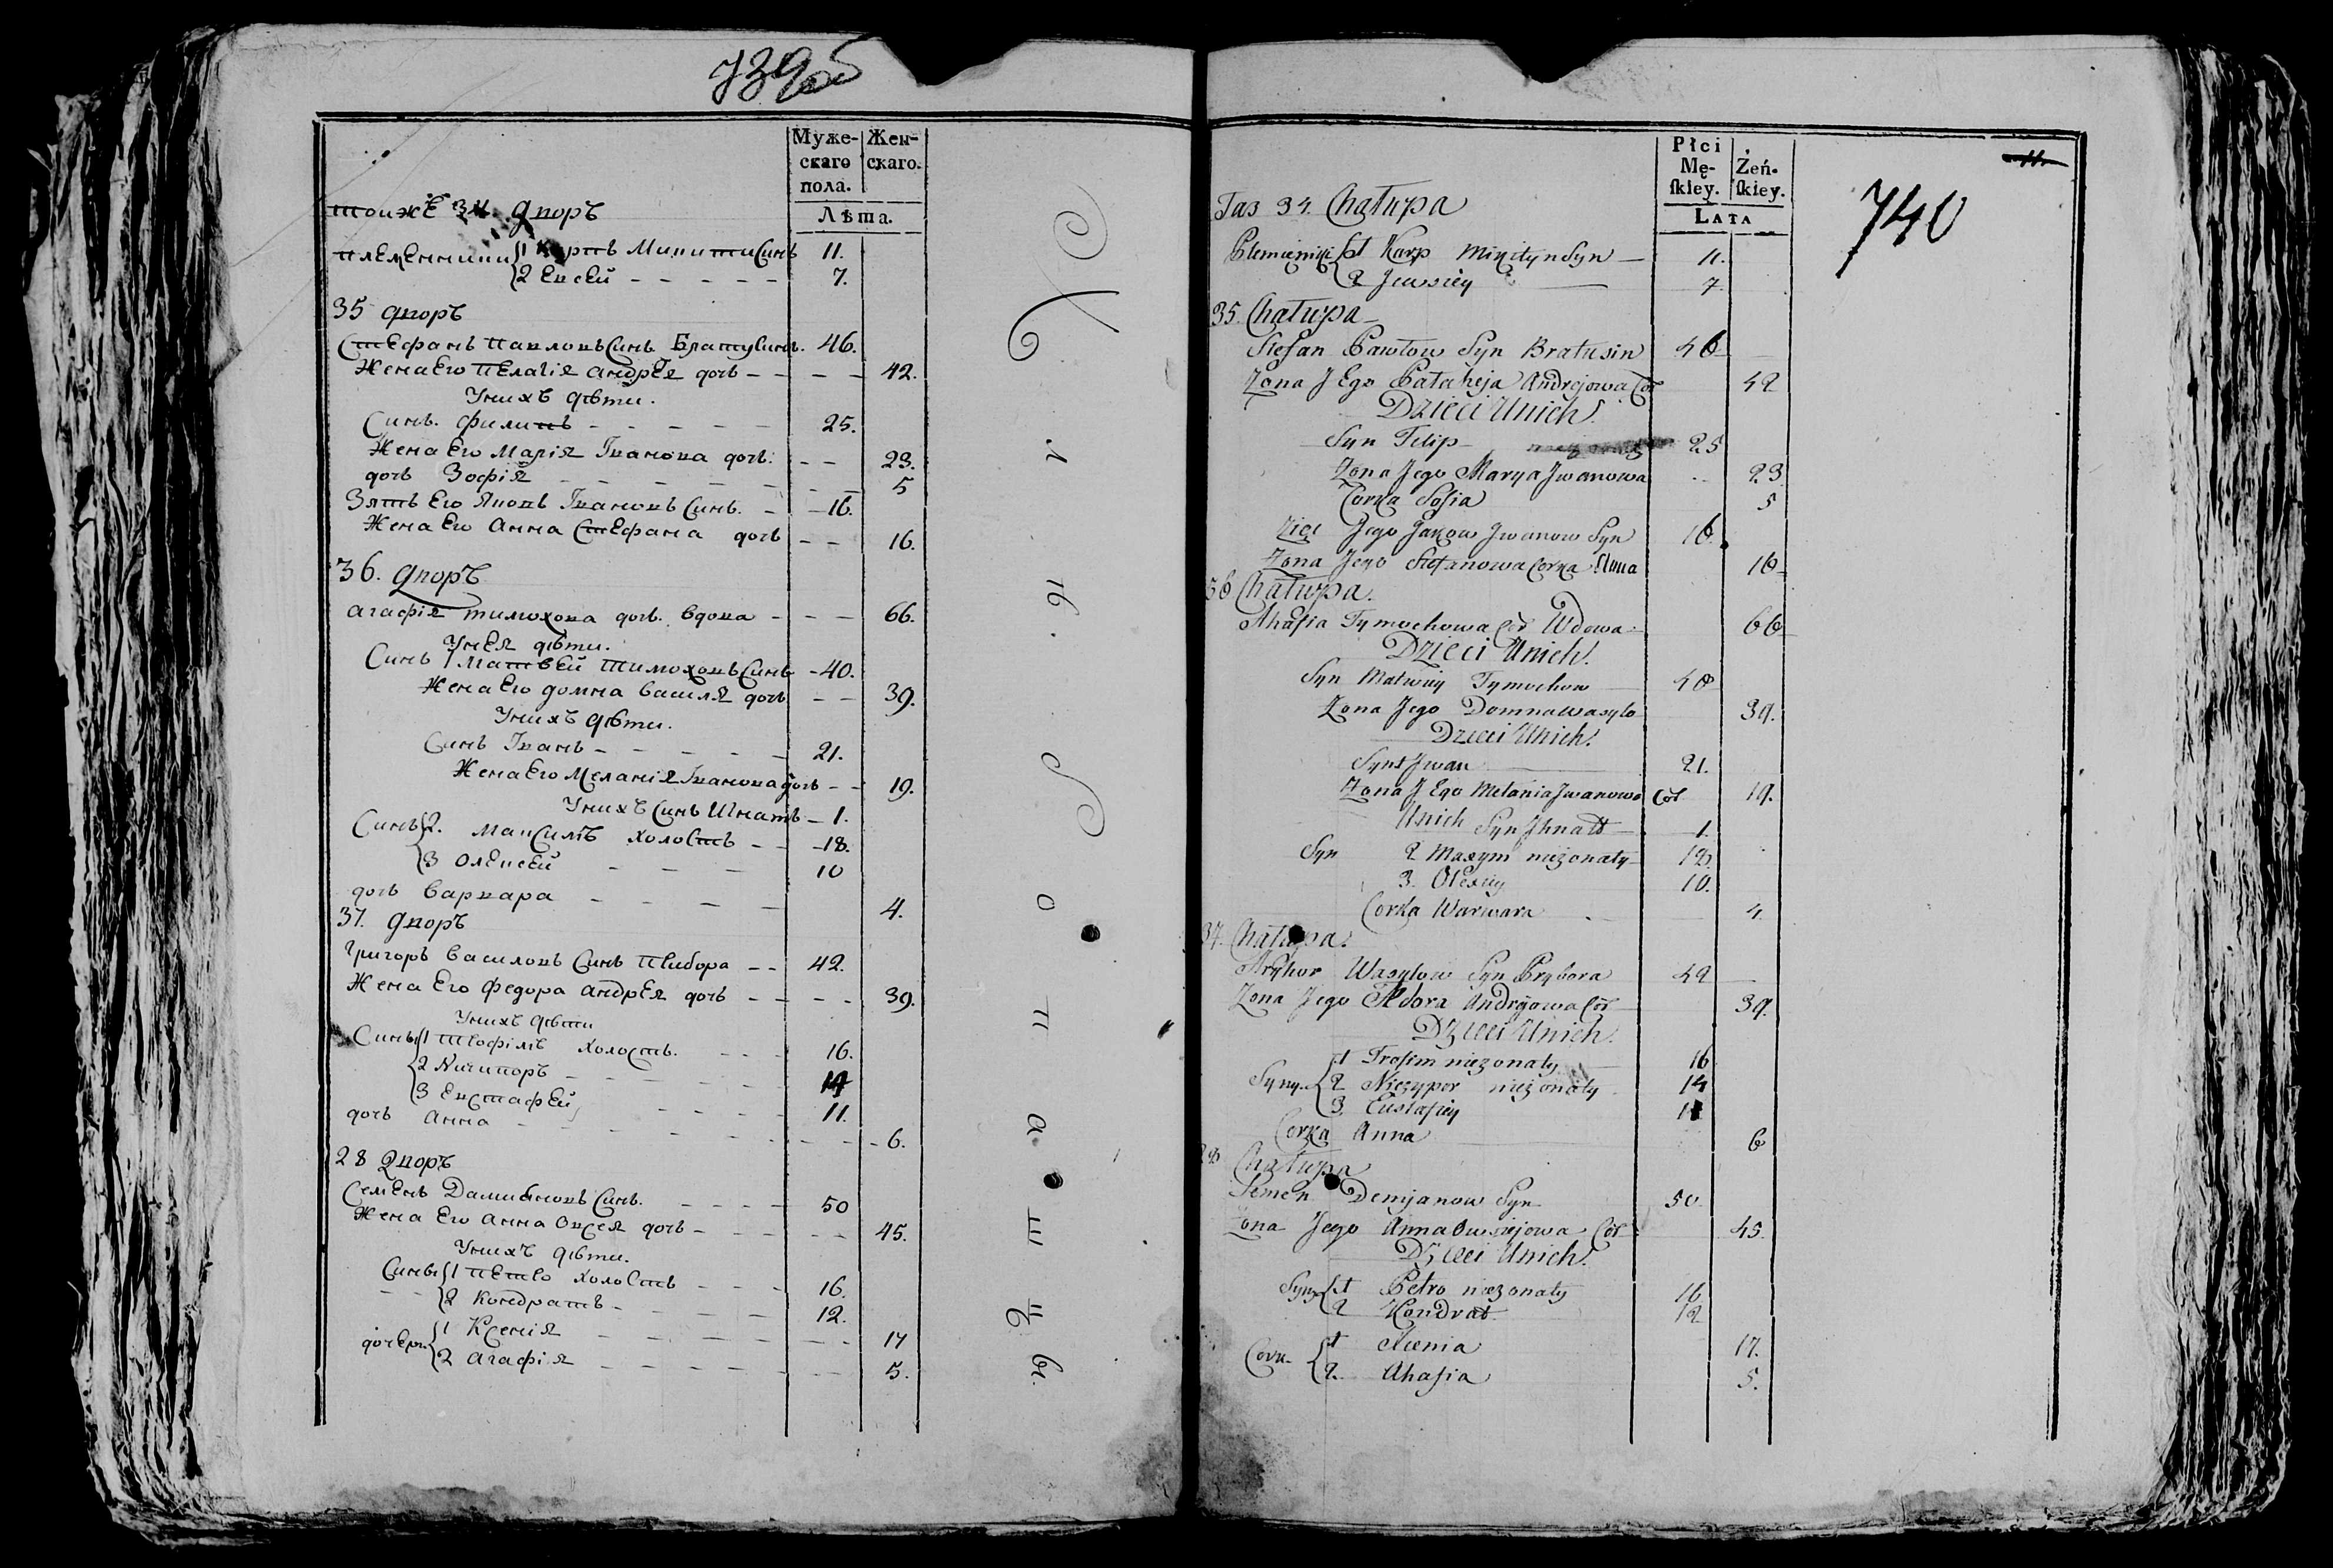 739об
Муже-
скаго
пола.
Жен-
скаго.
Лѣта.
тоижЕ 34 дворъ
племенники {1 Карпъ Микити Синъ 11.
{2 Евсей - - - - - 7.
35 дворъ
Стефанъ Павловъ Синъ Братусинъ. 46.
Жена Его Пелагія Андрея дочь - - - - 42.
У нихъ дѣти.
Синъ. Филипъ - - - - - 25.
Жена Его Марія Іванова дочь. - - 23.
дочь Зофія - - - - - - 5
Зять Его Яковъ Івановъ Синъ. - 16.
Жена Его Анна Стефана дочь - - 16.
36. дворъ
Агафія Тимохова дочь. вдова - - - 66.
У нея дѣти.
Синъ 1 Матвей Тимоховъ Синъ - 40.
Жена Его Домна Василя дочь - - 39.
У нихъ дѣти.
Синъ Іванъ - - - - - 21.
Жена Его Меланія Іванова дочь - - 19.
У нихъ Синъ Игнатъ - 1.
Синъ {2. Максимъ холостъ - - 18.
{3 Олексей - - - 10
дочь Варвара - - - - 4.
37. дворъ
Григоръ Василовъ Синъ Прибора - - 42.
Жена Его Федора Андрея дочь - - - - 39.
У нихъ дѣти
Сины {1 Трофимъ холостъ. - - - 16.
{2 Ничипоръ - - - - - - 14
{3 Евстафей - - - - 11.
дочь Анна - - - - - - - 6.
28 Дворъ
Семенъ Дамияновъ Синъ. - - - - 50
Жена Его Анна Овсея дочь - - - - 45.
У нихъ дѣти.
Сины {1 Петро холостъ - - - 16.
{2 Кондратъ - - - - - 12.
дочери {1 Ксенія - - - - - - 17
{2 Агафія - - - - - - 5.
Płci
Mę-
ſkiey.
Żeń-
ſkiey.
LATA
11.
740
Taż 34. Chałupa
Plemienniki {1 Karp Mikityn Syn — 11.
{2 Jewsiey — 7
35. Chałupa
Stefan Pawłow Syn Bratusin 46
Zona JEgo Palaheja Andrejowa Cor 42
Dzieci Unich.
Syn Filip 25
Zona Jego Marya Jwanowa 23
Corka Sofia 5
Zięć Jego Jakow Jwanow Syn 16
Zona Jego Stefanowa Corka Anna 16
36 Chałupa.
Ahafia Tymochowa Cor Wdowa 66
Dzieci Unich.
Syn Matwiy Tymochow 40
Zona Jego Domna Wasylo 39.
Dzieci Unich.
Syn 1 Jwan 21.
Zona JEgo Melania Jwanowa Cor 19.
Unich Syn Jhnatt 1.
Syn 2 Maxym nieżonaty 18.
3. Olexiy 10.
Corka Warwara 4.
37. Chałupa.
Hryhor Wasylow Syn Prybora 42
Zona Jego Fedora Andrejowa Cor 39.
Dzieci Unich.
Syny {1 Trofim nieżonaty 16
{2 Niczypor nieżonaty 14
{3 Eustafiy 11
Corka Anna 6
28 Chałupa
Semen Demjanow Syn 50.
Zona Jego Anna Owsiejowa Cor 45.
Dzieci Unich.
Syny {1 Petro nieżonaty 16
{2 Kondrat 12
Cork {1 Xenia 17.
{2. Ahafia 5.